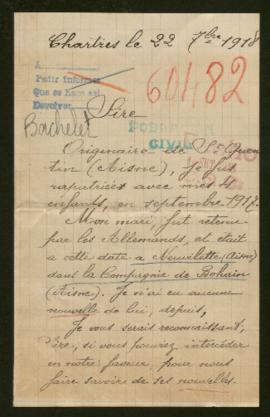 Chartres le 22 7bre 1918
A
Petir informes
Que se hace asi
Devolver
60482
Sire
Bachelet
CIVIL
Originaire de St Quen-
tin (Aisne), je fus
rapatriée avec mes 4
enfants, en septembre 1917.
Mon mari fut retenu
par les Allemands, et était
à cette date à Neuvillette (Aisne)
dans la Compagnie de Bohain
(Aisne). Je n'ai eu aucune
nouvelle de lui, depuis,
Je vous serais reconnaissant,
Sire, si vous pouviez intercéder
en notre faveur, pour nous
faire savoir de ses nouvelles.